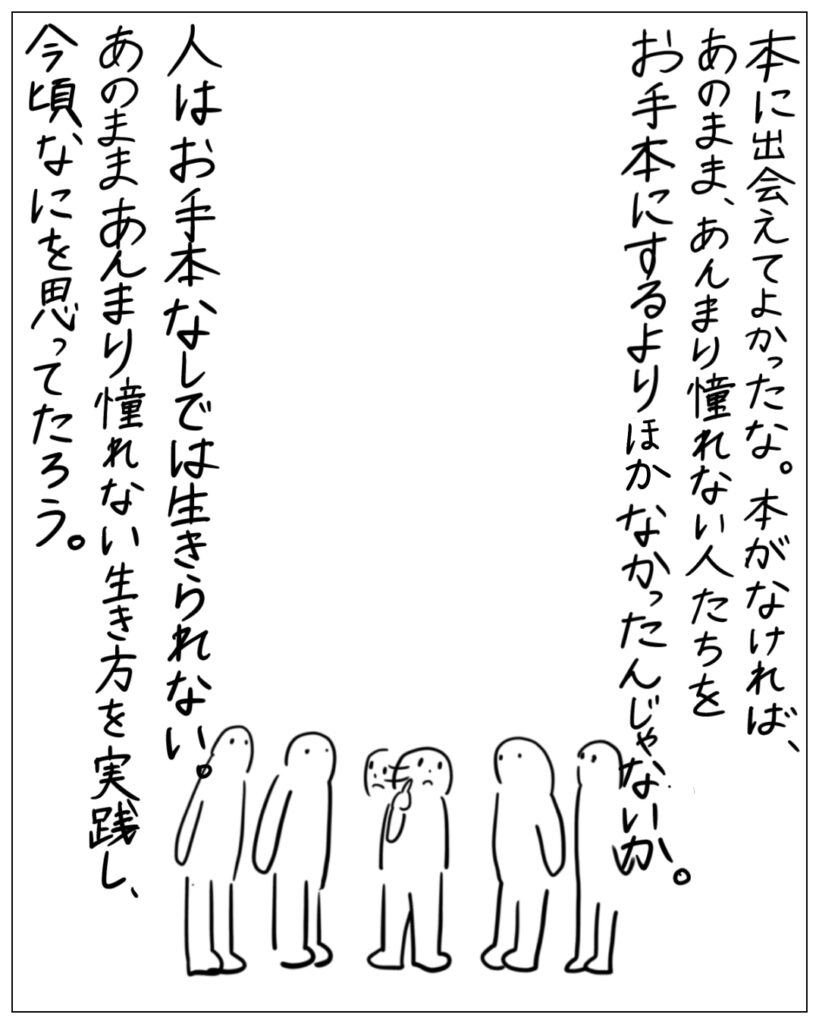 本に出会えてよかったな。本がなければ、
あのまま、あんまり憧れない人たちを
お手本にするよりほかなかったんじゃないか。
人はお手本なしでは生きられない。
あのままあんまり憧れない生き方を実践し、
今頃なにを思ってたろう。